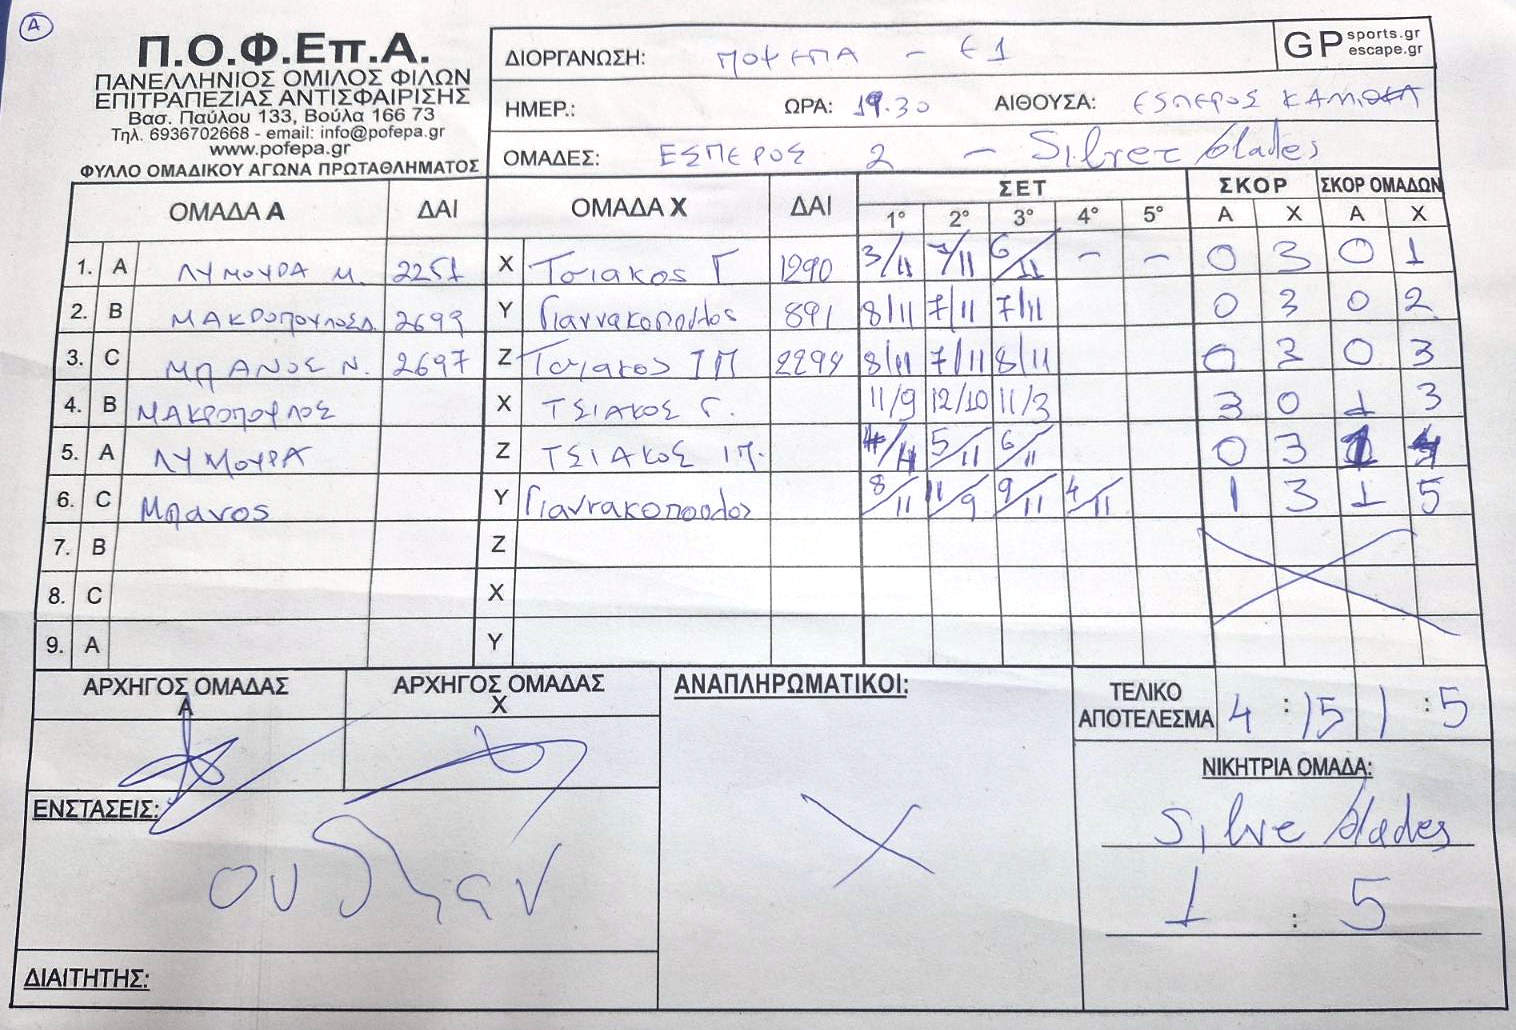 A
Π.Ο.Φ.Επ.Α.
ΠΑΝΕΛΛΗΝΙΟΣ ΟΜΙΛΟΣ ΦΙΛΩΝ
ΕΠΙΤΡΑΠΕΖΙΑΣ ΑΝΤΙΣΦΑΙΡΙΣΗΣ
Βασ. Παύλου 133, Βούλα 166 73
Τηλ. 6936702668 - email: info@pofepa.gr
www.pofepa.gr
ΦΥΛΛΟ ΟΜΑΔΙΚΟΥ ΑΓΩΝΑ ΠΡΩΤΑΘΛΗΜΑΤΟΣ
ΔΙΟΡΓΑΝΩΣΗ: ΠΟΦΕΠΑ - Ε1
GP sports.gr escape.gr
ΗΜΕΡ.: ΩΡΑ: 19.30 ΑΙΘΟΥΣΑ: ΕΣΠΕΡΟΣ
ΟΜΑΔΕΣ: ΕΣΠΕΡΟΣ 2 - Silver blades
ΟΜΑΔΑ Α ΔΑΙ ΟΜΑΔΑ Χ ΔΑΙ ΣΕΤ ΣΚΟΡ ΣΚΟΡ ΟΜΑΔΩΝ
1° 2° 3° 4° 5° Α Χ Α Χ
1. A ΛΥΜΟΥΡΑ Μ. 2251 X Τσιακος Γ 1290 3/11 7/11 6/11 - - 0 3 0 1
2. B ΜΑΚΡΟΠΟΥΛΟΣ Δ. 2699 Y Γιαννακοπουλος 891 8/11 7/11 7/11 0 3 0 2
3. C ΜΠΑΝΟΣ Ν. 2697 Z Τσιακος ΙΠ 2294 8/11 7/11 8/11 0 3 0 3
4. B ΜΑΚΡΟΠΟΥΛΟΣ X ΤΣΙΑΚΟΣ Γ. 11/9 12/10 11/3 3 0 1 3
5. A ΛΥΜΟΥΡΑ Z ΤΣΙΑΚΟΣ ΙΠ. 4/11 5/11 6/11 0 3 1 4
6. C Μπανος Y Γιαννακοπουλος 8/11 11/9 9/11 4/11 1 3 1 5
7. B Z
8. C X
9. A Y
ΑΡΧΗΓΟΣ ΟΜΑΔΑΣ Α
ΑΡΧΗΓΟΣ ΟΜΑΔΑΣ Χ
ΑΝΑΠΛΗΡΩΜΑΤΙΚΟΙ:
ΤΕΛΙΚΟ ΑΠΟΤΕΛΕΣΜΑ 4 : 15 1 : 5
ΝΙΚΗΤΡΙΑ ΟΜΑΔΑ:
Silve blades
1 : 5
ΕΝΣΤΑΣΕΙΣ:
ουδεν
ΔΙΑΙΤΗΤΗΣ: